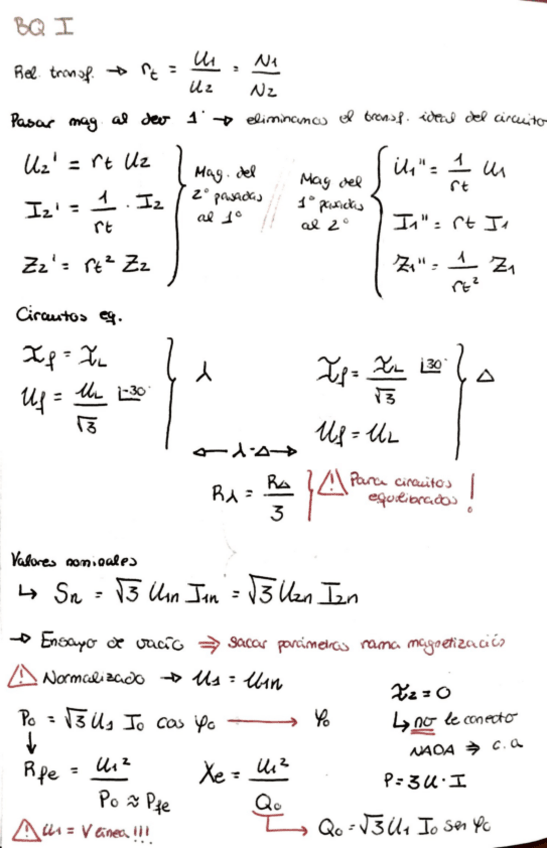 BQ I
Rel. transf. → rt = U1/U2 = N1/N2
Pasar mag. al dev 1º → eliminamos el transf. ideal del circuito
U2' = rt U2
I2' = 1/rt · I2
Z2' = rt² Z2
Mag. del
2º pasadas
al 1º
Mag del
1º pasadas
al 2º
U1'' = 1/rt U1
I1'' = rt I1
Z1'' = 1/rt² Z1
Circuitos eq.
If = IL
Uf = UL/√3 ∟-30º
⅄
If = IL/√3 ∟30º
Uf = UL
Δ
← ⅄-Δ →
R⅄ = RΔ/3
⚠ Para circuitos
equilibrados!
Valores nominales
↳ Sn = √3 U1n I1n = √3 U2n I2n
→ Ensayo de vacío ⇒ sacar parámetros rama magnetización
⚠ Normalizado → U1 = U1n
P0 = √3 U1 I0 cos φ0 → φ0
I2 = 0
↳ no le conecto
NADA ⇒ c.a
P = 3U·I
Rfe = U1²/P0 ≈ Pfe
Xe = U1²/Q0
↳ Q0 = √3 U1 I0 sen φ0
⚠ U1 = V línea!!!